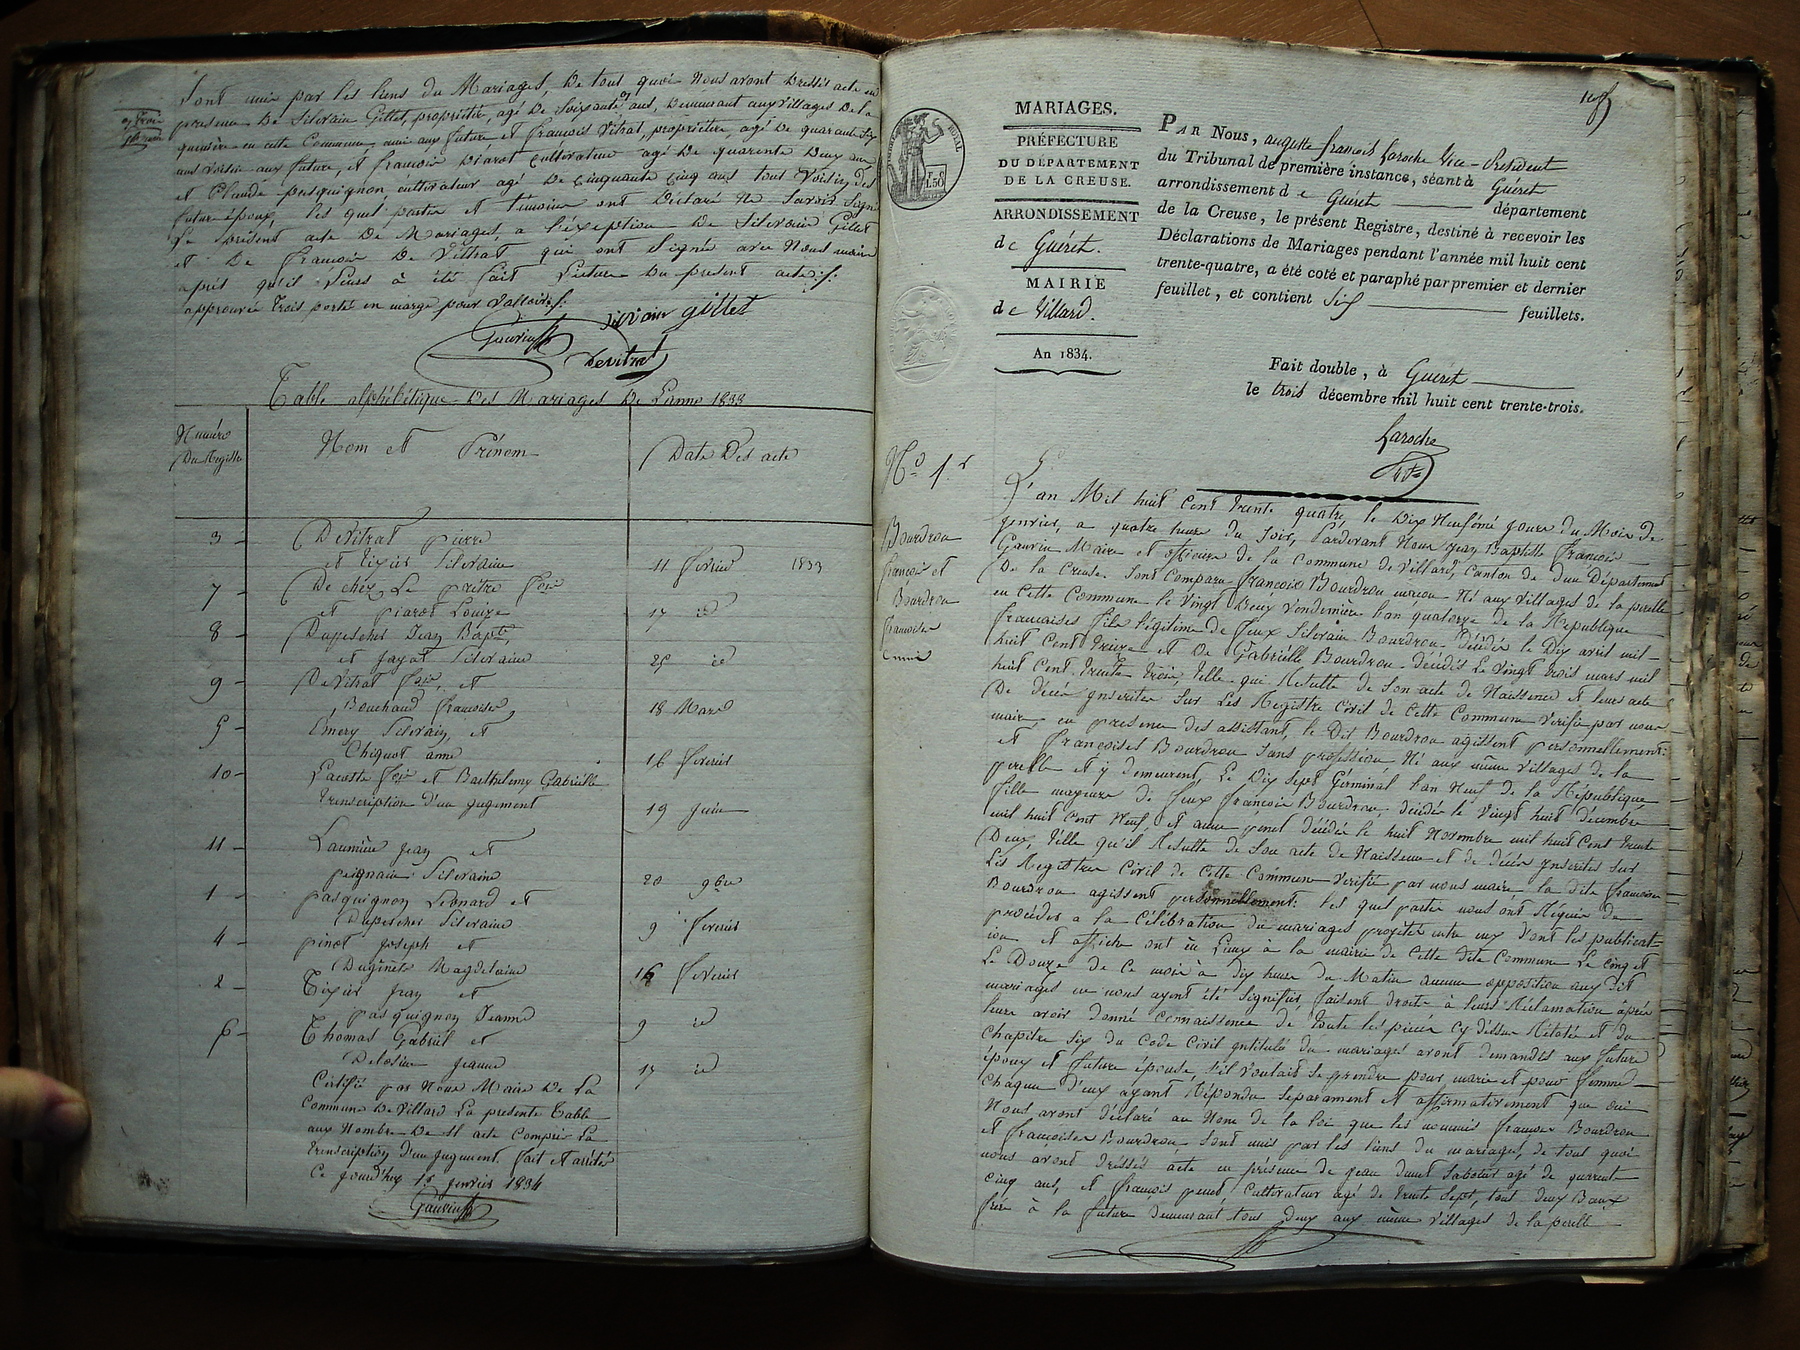 Sont unis par les liens du Mariages, De tout quoi Nous avont Dressés acte en
presence De Silvrain Gillet, propriétér, agé De Soixante ans, Demeurant aux villages De la
en cette Commune, ami aux future et françois Vitrat, propriétere, agé De quarante six
ans voisin aux future, et françois Diarot Cultivateur agé De quarente Deux ans
et Claude pasquignon cultivateur agé De Cinquante Cinq ans tous Voisins des
futur époux, les quel partie et témoin ont Déclaré Ne Savoir Signé
Le présent acte De Mariages, a l'éxéption De Silvrain Gillet
et De françois De Vittrat qui ont Signée avec Nous maire
après qu'il Leurs à été fait Lecture Du present acte ./.
approuvée trois porté en marge pour Valloir ./.
Silvrain gillet
Gauvin
Devitrat
Table alphébétique Des Mariages De L'anne 1833
Numéro Du Registre
Nom et Prénom
Date Des acte
3 - Devitrat pierre
et tixier Silvraine 11 fevrier 1833
7 - De chez Le prêtre fois
et piarot Louize 17 id
8 - Dupeschér Jean Bapte
et Jayot Silvraine 25 id
9 - Devitrat fois, et
Bouchaud francoise 18 Mard
5 - Emery Silvrain, et
Chiquot anne 16 fevrier
10 - Lacoste fois et Barthélemy Gabrielle
trenscription d'un jugement 19 Juin
11 - Laumière Jean et
peignain Silvraine 20 9bre
1 - pasquignon Léonard et
Dupeicher Silvraine 9 fevrier
4 - pinot Joseph et
Duginets Magdelaine 16 fevrier
2 - Tixier Jean et
pasquignon Jeanne 9 id
6 - Thomas Gabriel et
Delosine Jeanne 17 id
Cértifié par Nous Maire De La
Commune De Villard La presente Table
aux Nombre De 11 acte Compris La
trenscription D'un Jugement. Fait et arrété
Ce Jourd'huy 1er Janvier 1834
Gauvin
MARIAGES.
PRÉFECTURE
DU DÉPARTEMENT
DE LA CREUSE.
ARRONDISSEMENT
de Guéret.
MAIRIE
de Villard.
An 1834.
PAR Nous, auguste françois Laroche Vice-Président
du Tribunal de première instance, séant à Guéret
arrondissement de Guéret département
de la Creuse, le présent Registre, destiné à recevoir les
Déclarations de Mariages pendant l'année mil huit cent
trente-quatre, a été coté et paraphé par premier et dernier
feuillet, et contient Six feuillets.
Fait double, à Guéret
le trois décembre mil huit cent trente-trois.
Laroche
No 1r
Bourdrou
francois et
Bourdrou
francoise
L'an Mil huit Cent trente quatre, le Dix Neufième jours du Mois de
Jenvier, a quatre heure du Soir, Pardevant Nous Jean Baptiste François
Gauvin Maire et officier de la commune de Villard, Canton de dun Département
De la Creuse Sont Comparu François Bourdrou maçon Né aux villages de la perelle
en Cette Commune le Vingt Deux Vendemière l'an quatorze de la République
francaises fils légitime de feux Silvrain Bourdrou Décédé le Dix avril mil
huit Cent treize et de Gabriélle Bourdrou décédés le Vingt trois mars mil
huit Cent trente trois, telle qui Résulte de Son acte de Naissence et leurs acte
De décés ynscrites Sur Les Registre Civil de Cette Commune Vérifié par nous
maire, en presence des assistant, le Dit Bourdrou agissent personnellement:
et françoises Bourdrou Sans profession Né aux même Villages de la
perelle et y demeurent, Le Dix Sept Gérminal l'an Neuf de la République
fille majeure de feux françois Bourdrou, décédés le Vingt huit décembre
mil huit Cent Neuf et anne penot décédés le huit Novembre mil huit Cent trente
Deux, telle qu'il Résulte de Son acte de Naissence et de décés ynscrites Sur
Les Registres Civil de Cette Commune Vérifié par nous maire la dite francoise
Bourdrou agissent personnellement: les quel partie nous ont Réquis de
procéder a la Célébration du mariages projetée entre eux Dont les publicat-
ion et affiche ont eu Lieux à la mairie de Cette dite Commune Le Cinq et
Le Douze de Ce mois à dix heure du Matin aucune opposition aux dit
mariages ne nous ayent été Signifiée, faisent droite à leurs Réclamation áprés
leurs avoir donné Connaissence de toute les piecès cy déssus Rélatée et du
Chapitre Six du Code Civil yntitulé du mariages avont demandés aux futur
époux et future épouse, S'il voulais Se prendre pour marie et pour femme
Chaque D'eux ayant Répondu Séparament et affirmativement que oui
Nous avont déclaré au Nom de la loi que les nommés francois Bourdrou
et francoises Bourdrou Sont unis par les liens du mariage, de tout quoi
nous avont Dressés acte en présence de jean dunet Sabotier agé de quarent
cinq ans, et francois penot Cultivateur agé de trente Sept, tout deux Baux
frère à la future Demeurant tous deux aux même Villages de la perelle